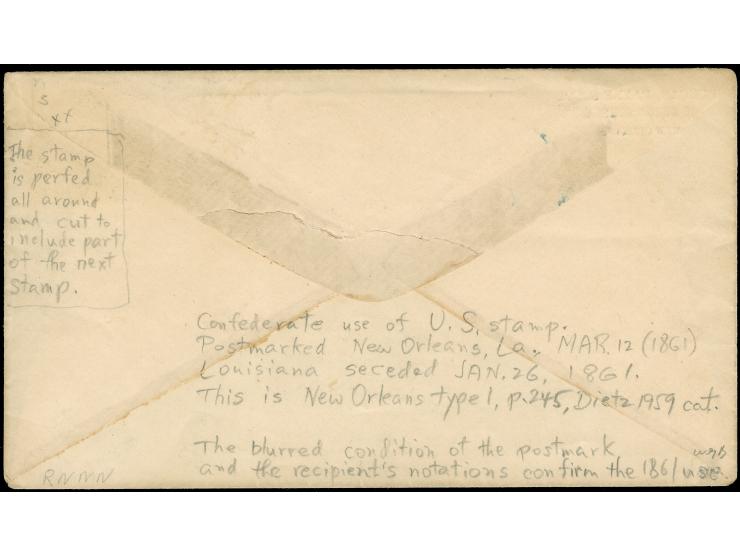 n
s
xt
The stamp
is perfed
all around
and cut to
include part
of the next
stamp.
Confederate use of U.S. stamp.
Postmarked New Orleans, La., MAR. 12 (1861)
Louisiana seceded JAN. 26, 1861.
This is New Orleans type 1, p. 245, Dietz 1959 cat.
The blurred condition of the postmark
and the recipient's notations confirm the 1861 use.
RNNN